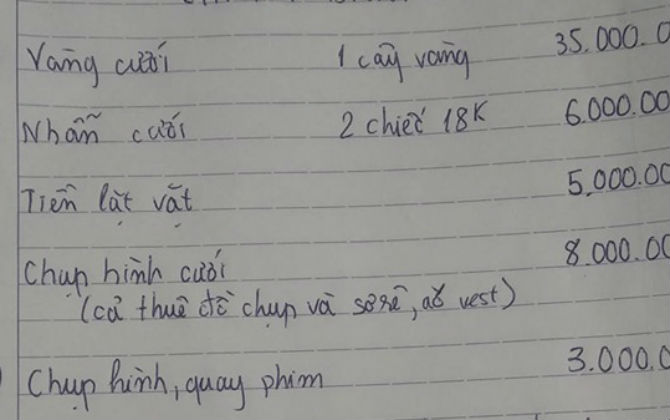 Vàng cưới 1 cây vàng 35.000.0
Nhẫn cưới 2 chiếc 18K 6.000.00
Tiền lặt vặt 5.000.00
Chụp hình cưới 8.000.00
(cả thuê đồ chụp và sơrê, áo vest)
Chụp hình, quay phim 3.000.0